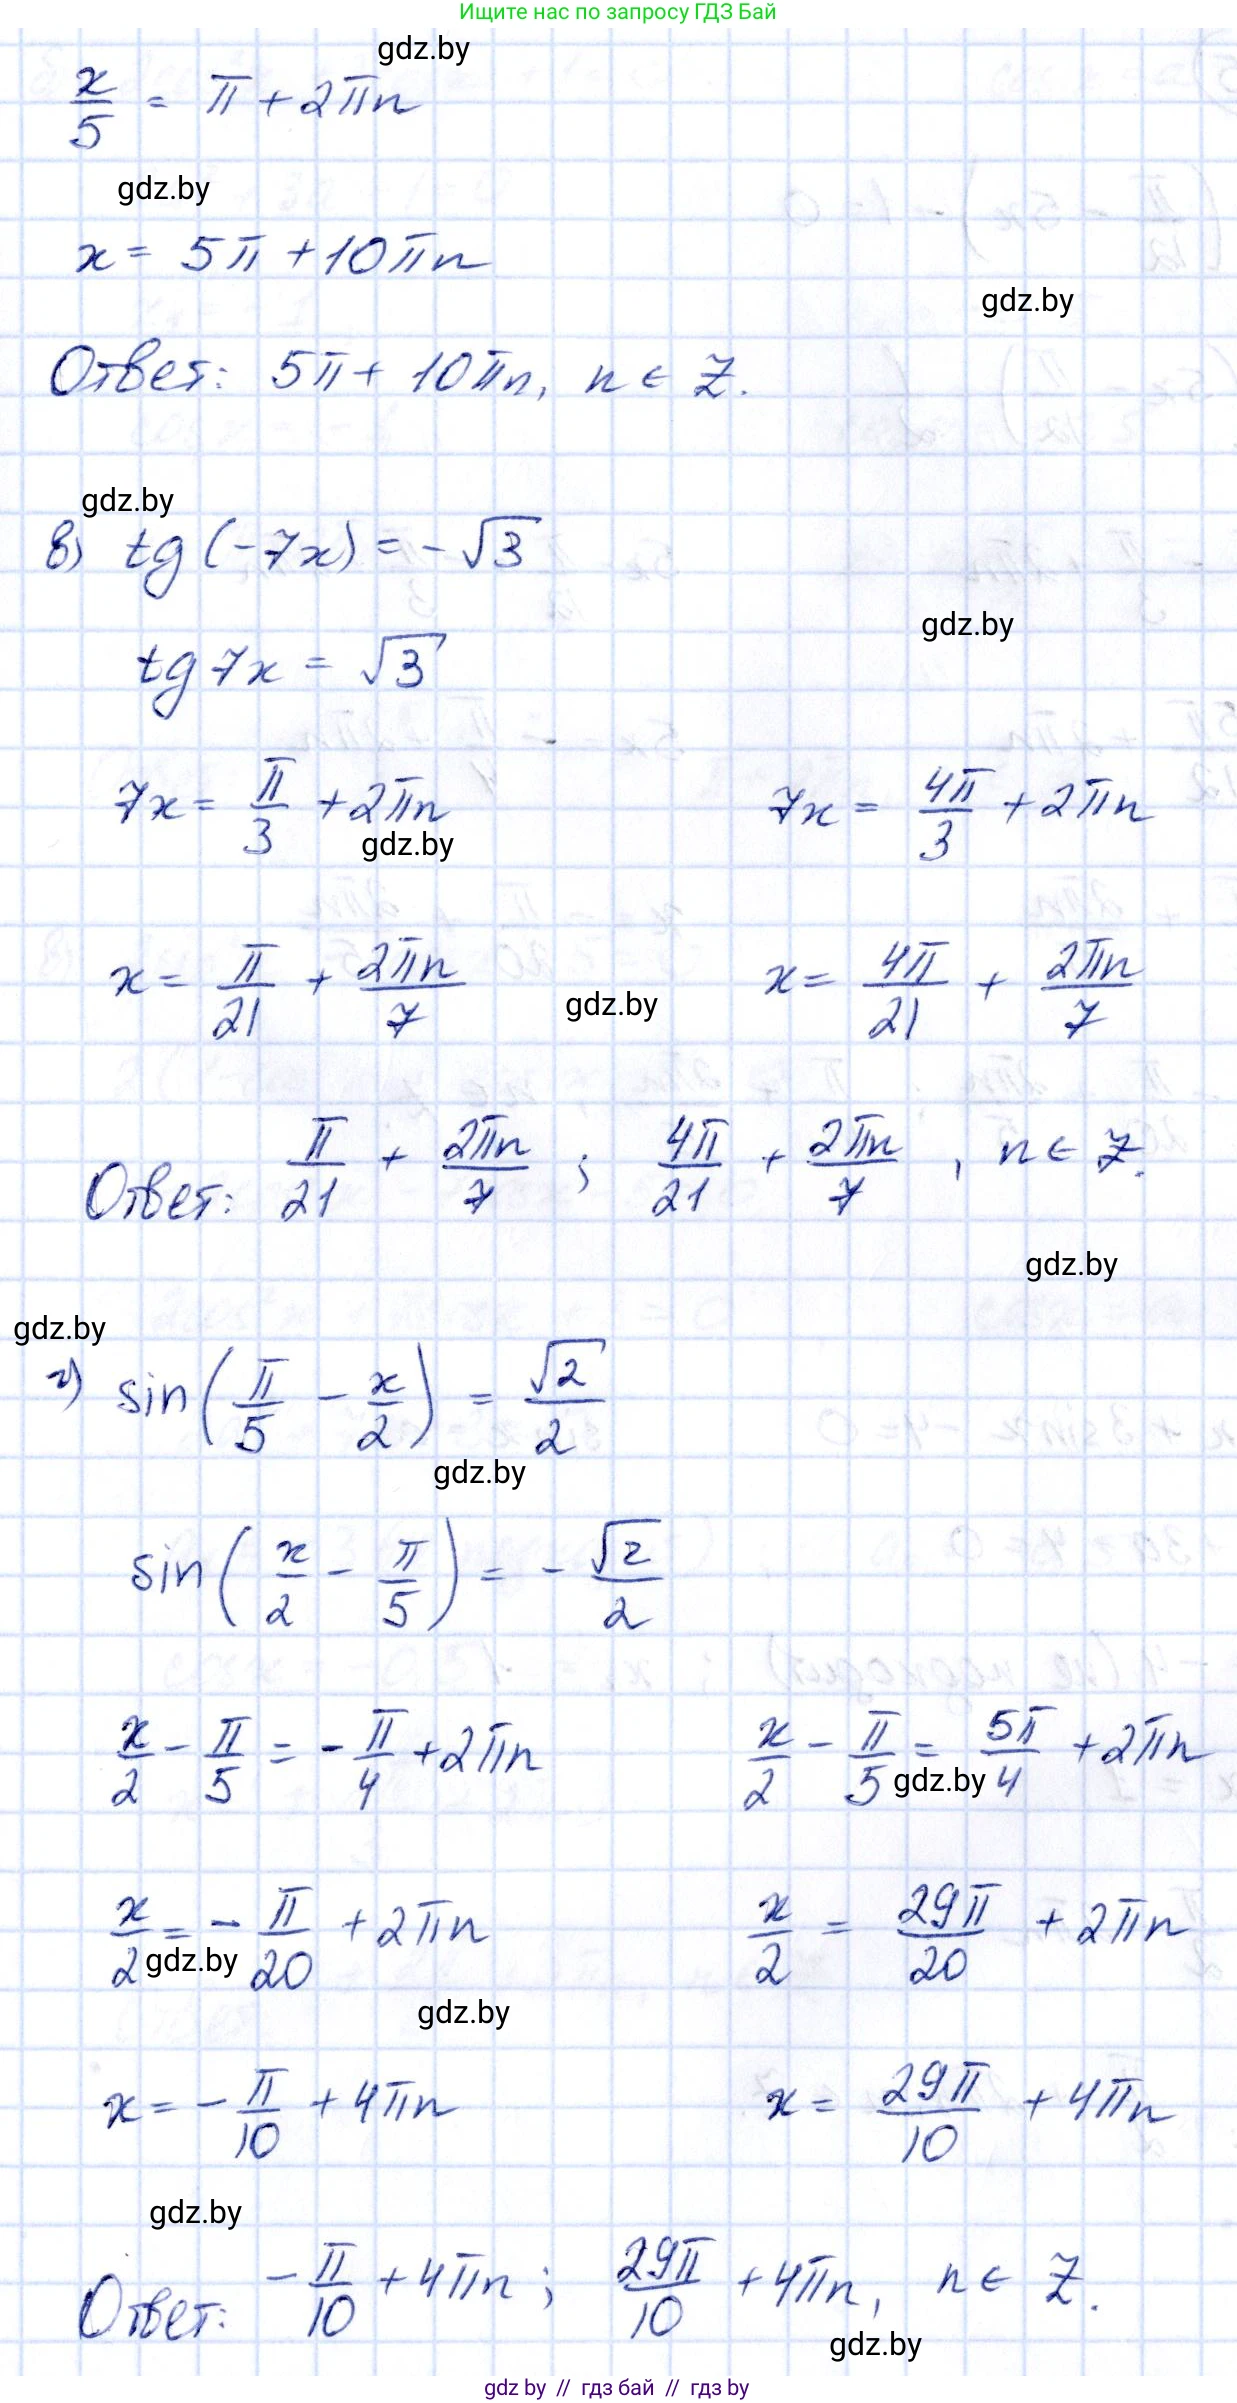 Ищите нас по запросу ГДЗ Бай
gdz.by
x/5 = π + 2πn
gdz.by
x = 5π + 10πn
gdz.by
Ответ: 5π + 10πn, n ∈ Z.
gdz.by
в) tg(-7x) = -√3
gdz.by
tg 7x = √3
7x = π/3 + 2πn 7x = 4π/3 + 2πn
gdz.by
x = π/21 + 2πn/7 x = 4π/21 + 2πn/7
gdz.by
Ответ: π/21 + 2πn/7 ; 4π/21 + 2πn/7 , n ∈ Z.
gdz.by
gdz.by
г) sin(π/5 - x/2) = √2/2
gdz.by
sin(x/2 - π/5) = -√2/2
x/2 - π/5 = -π/4 + 2πn x/2 - π/5 = 5π/4 + 2πn
gdz.by
x/2 = -π/20 + 2πn x/2 = 29π/20 + 2πn
gdz.by
gdz.by
x = -π/10 + 4πn x = 29π/10 + 4πn
gdz.by
Ответ: -π/10 + 4πn ; 29π/10 + 4πn, n ∈ Z.
gdz.by
gdz by // гдз бай // гдз by